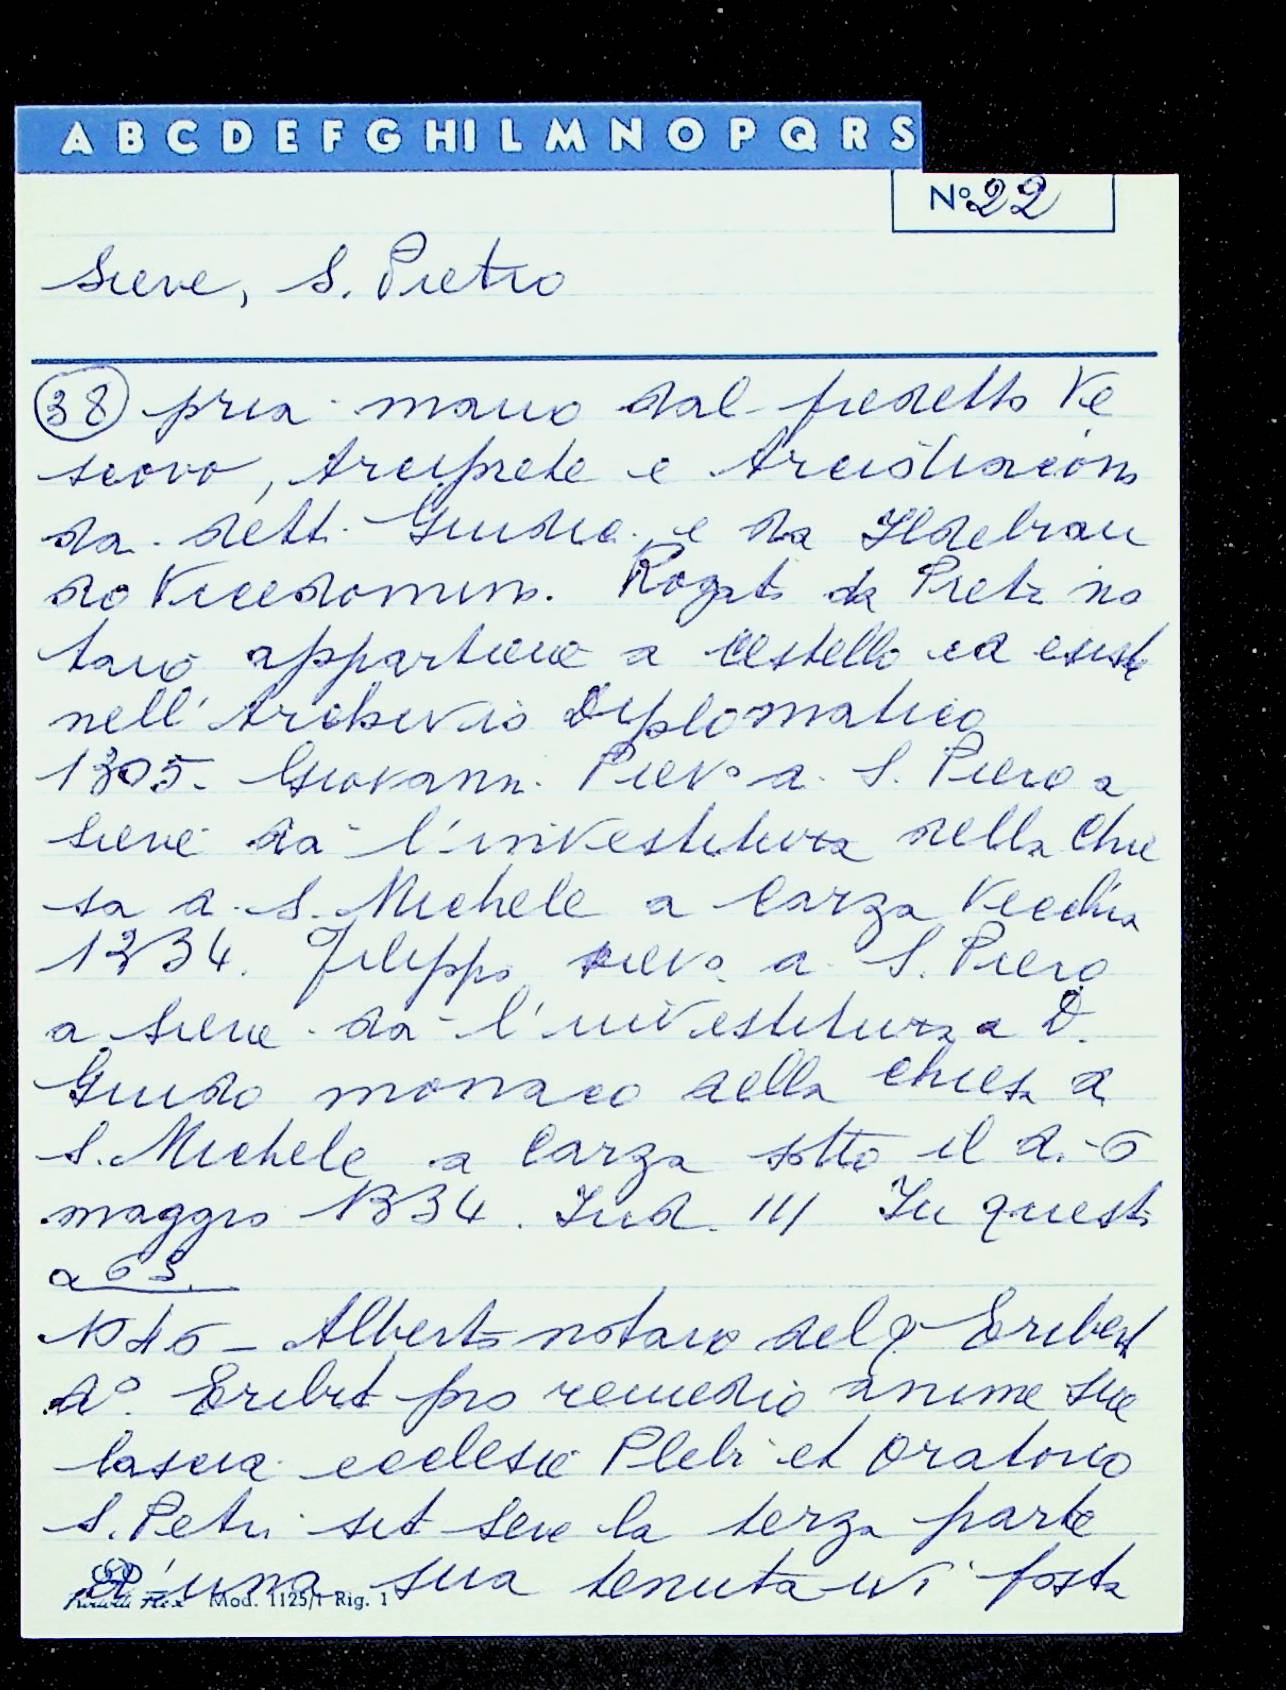 A B C D E F G HI L M N O P Q R S
N° 22
Sieve, S. Pietro
38 pria mano dal predetto Ve
scovo, Arciprete e Arcidiacono
da detti Giudici e da Ildebran
do Vicedomino. Rogato da Pietro no
taio appartiene a Cestello ed esiste
nell'Archivio Diplomatico
1305. Giovanni Pievo di S. Piero a
Sieve dà l'investitura della Chie
sa di S. Michele a Carza Vecchia
1334. Filippo pievo di S. Piero
a Sieve dà l'investitura a D.
Guido monaco della chiesa di
S. Michele a Carza sotto il dì 6
maggio 1334. Ind. III In questo
a 63.
1046 - Alberto notaio del q Eriberto
d° Eribrt pro remedio anime sue
lascia ecclesie Plebi et Oratorio
S. Petri sit Seve la terza parte
d'una sua tenuta ivi posta
Mod. 1125/1 Rig. 1